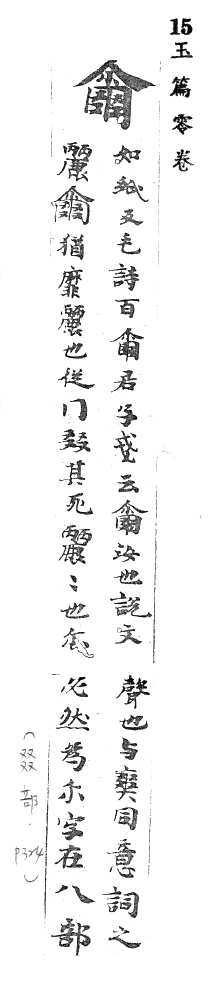 15玉篇零卷
爾
如紙反毛詩百爾君子箋云爾汝也說文
麗爾猶靡麗也從冂㸚其孔麗〻也尒
聲也与爽同意詞之
必然爲尒字在八部
(㸚部.P324)